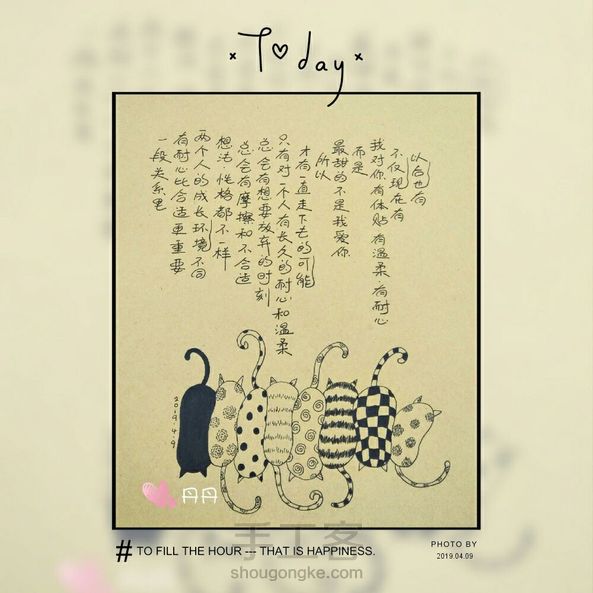 Today
一段关系里
有耐心比合适更重要
两个人的成长环境不同
想法 性格都不一样
总会有摩擦和不合适
总会有想要放弃的时刻
只有对一个人有长久的耐心和温柔
才有一直走下去的可能
所以
最甜的不是我爱你
而是
我对你有体贴 有温柔 有耐心
不仅现在有
以后也有
2019.4.9
丹丹
手工客
# TO FILL THE HOUR --- THAT IS HAPPINESS.
PHOTO BY
2019.04.09
shougongke.com